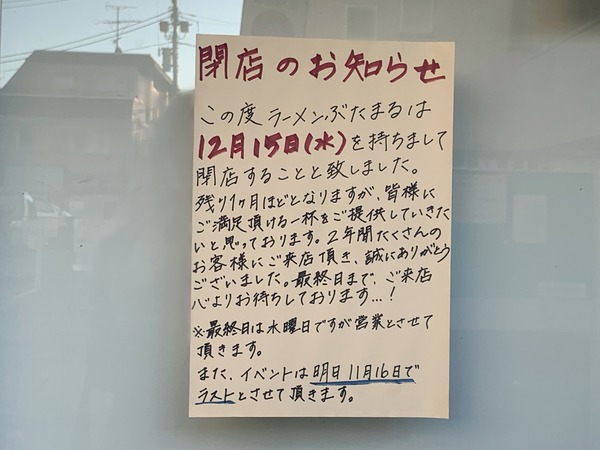 閉店のお知らせ
この度ラーメンぶたまるは
12月15日(水)を持ちまして
閉店することと致しました。
残り1ヶ月ほどとなりますが、皆様に
ご満足頂ける一杯をご提供していきた
いと思っております。2年間たくさんの
お客様にご来店頂き、誠にありがとう
ございました。最終日まで、ご来店
心よりお待ちしております…!
※最終日は水曜日ですが営業とさせて
頂きます。
また、イベントは明日11月16日で
ラストとさせて頂きます。